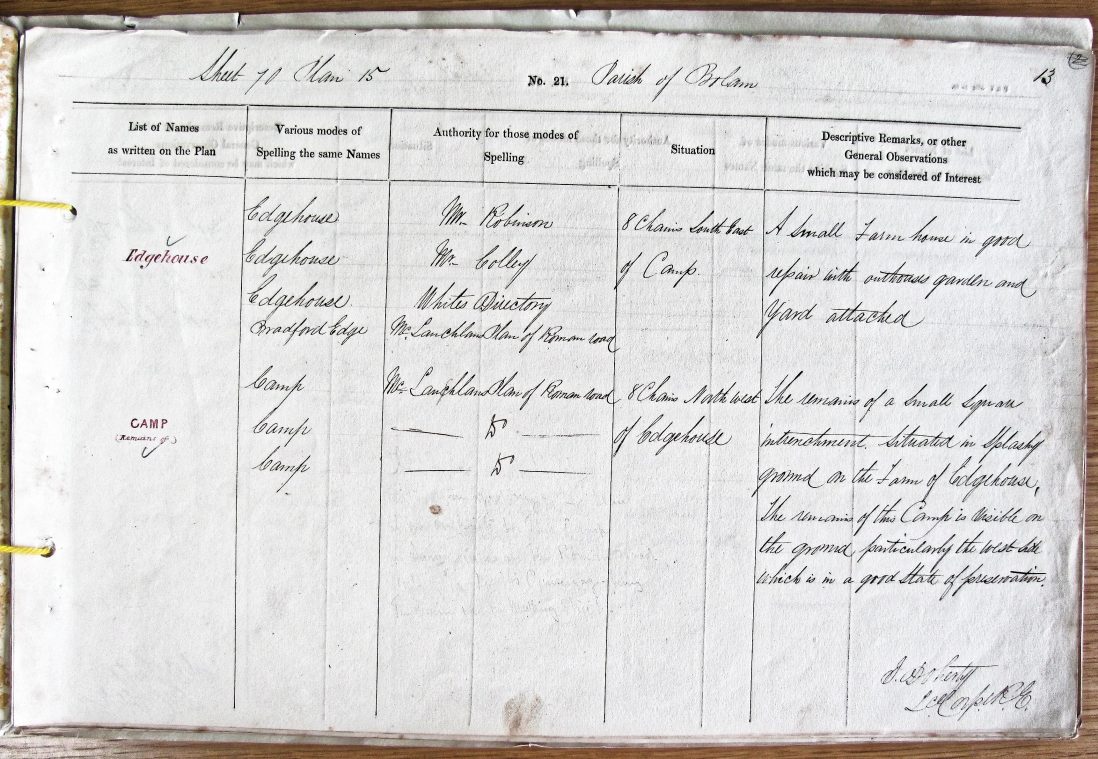 Sheet 70 Plan 15 No. 21. Parish of Bolam 13
2
List of Names
as written on the Plan
Various modes of
Spelling the same Names
Authority for those modes of
Spelling
Situation
Descriptive Remarks, or other
General Observations
which may be considered of Interest
Edgehouse
Edgehouse
Edgehouse
Edgehouse
Bradford Edge
Mr. Robinson
Mr. Colley
Whites Directory
Mc. Lauchlans Plan of Roman road
8 Chains South East
of Camp.
A Small Farm house in good
repair with outhouses garden and
Yard attached
CAMP
(Remains of)
Camp
Camp
Camp
Mc. Lauchlans Plan of Roman road
Do
Do
8 Chains North West
of Edgehouse
The remains of a Small Square
intrenchment. Situated in Splashy
ground on the Farm of Edgehouse,
The remains of this Camp is Visible on
the ground, particularly the West Side
which is in a good State of preservation.
J. Doherty
Corpl R.E.